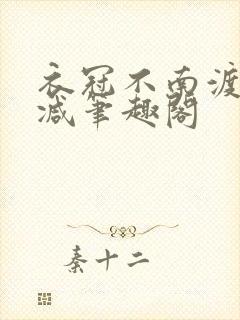 衣冠不南渡
减笔趣阁
秦十二